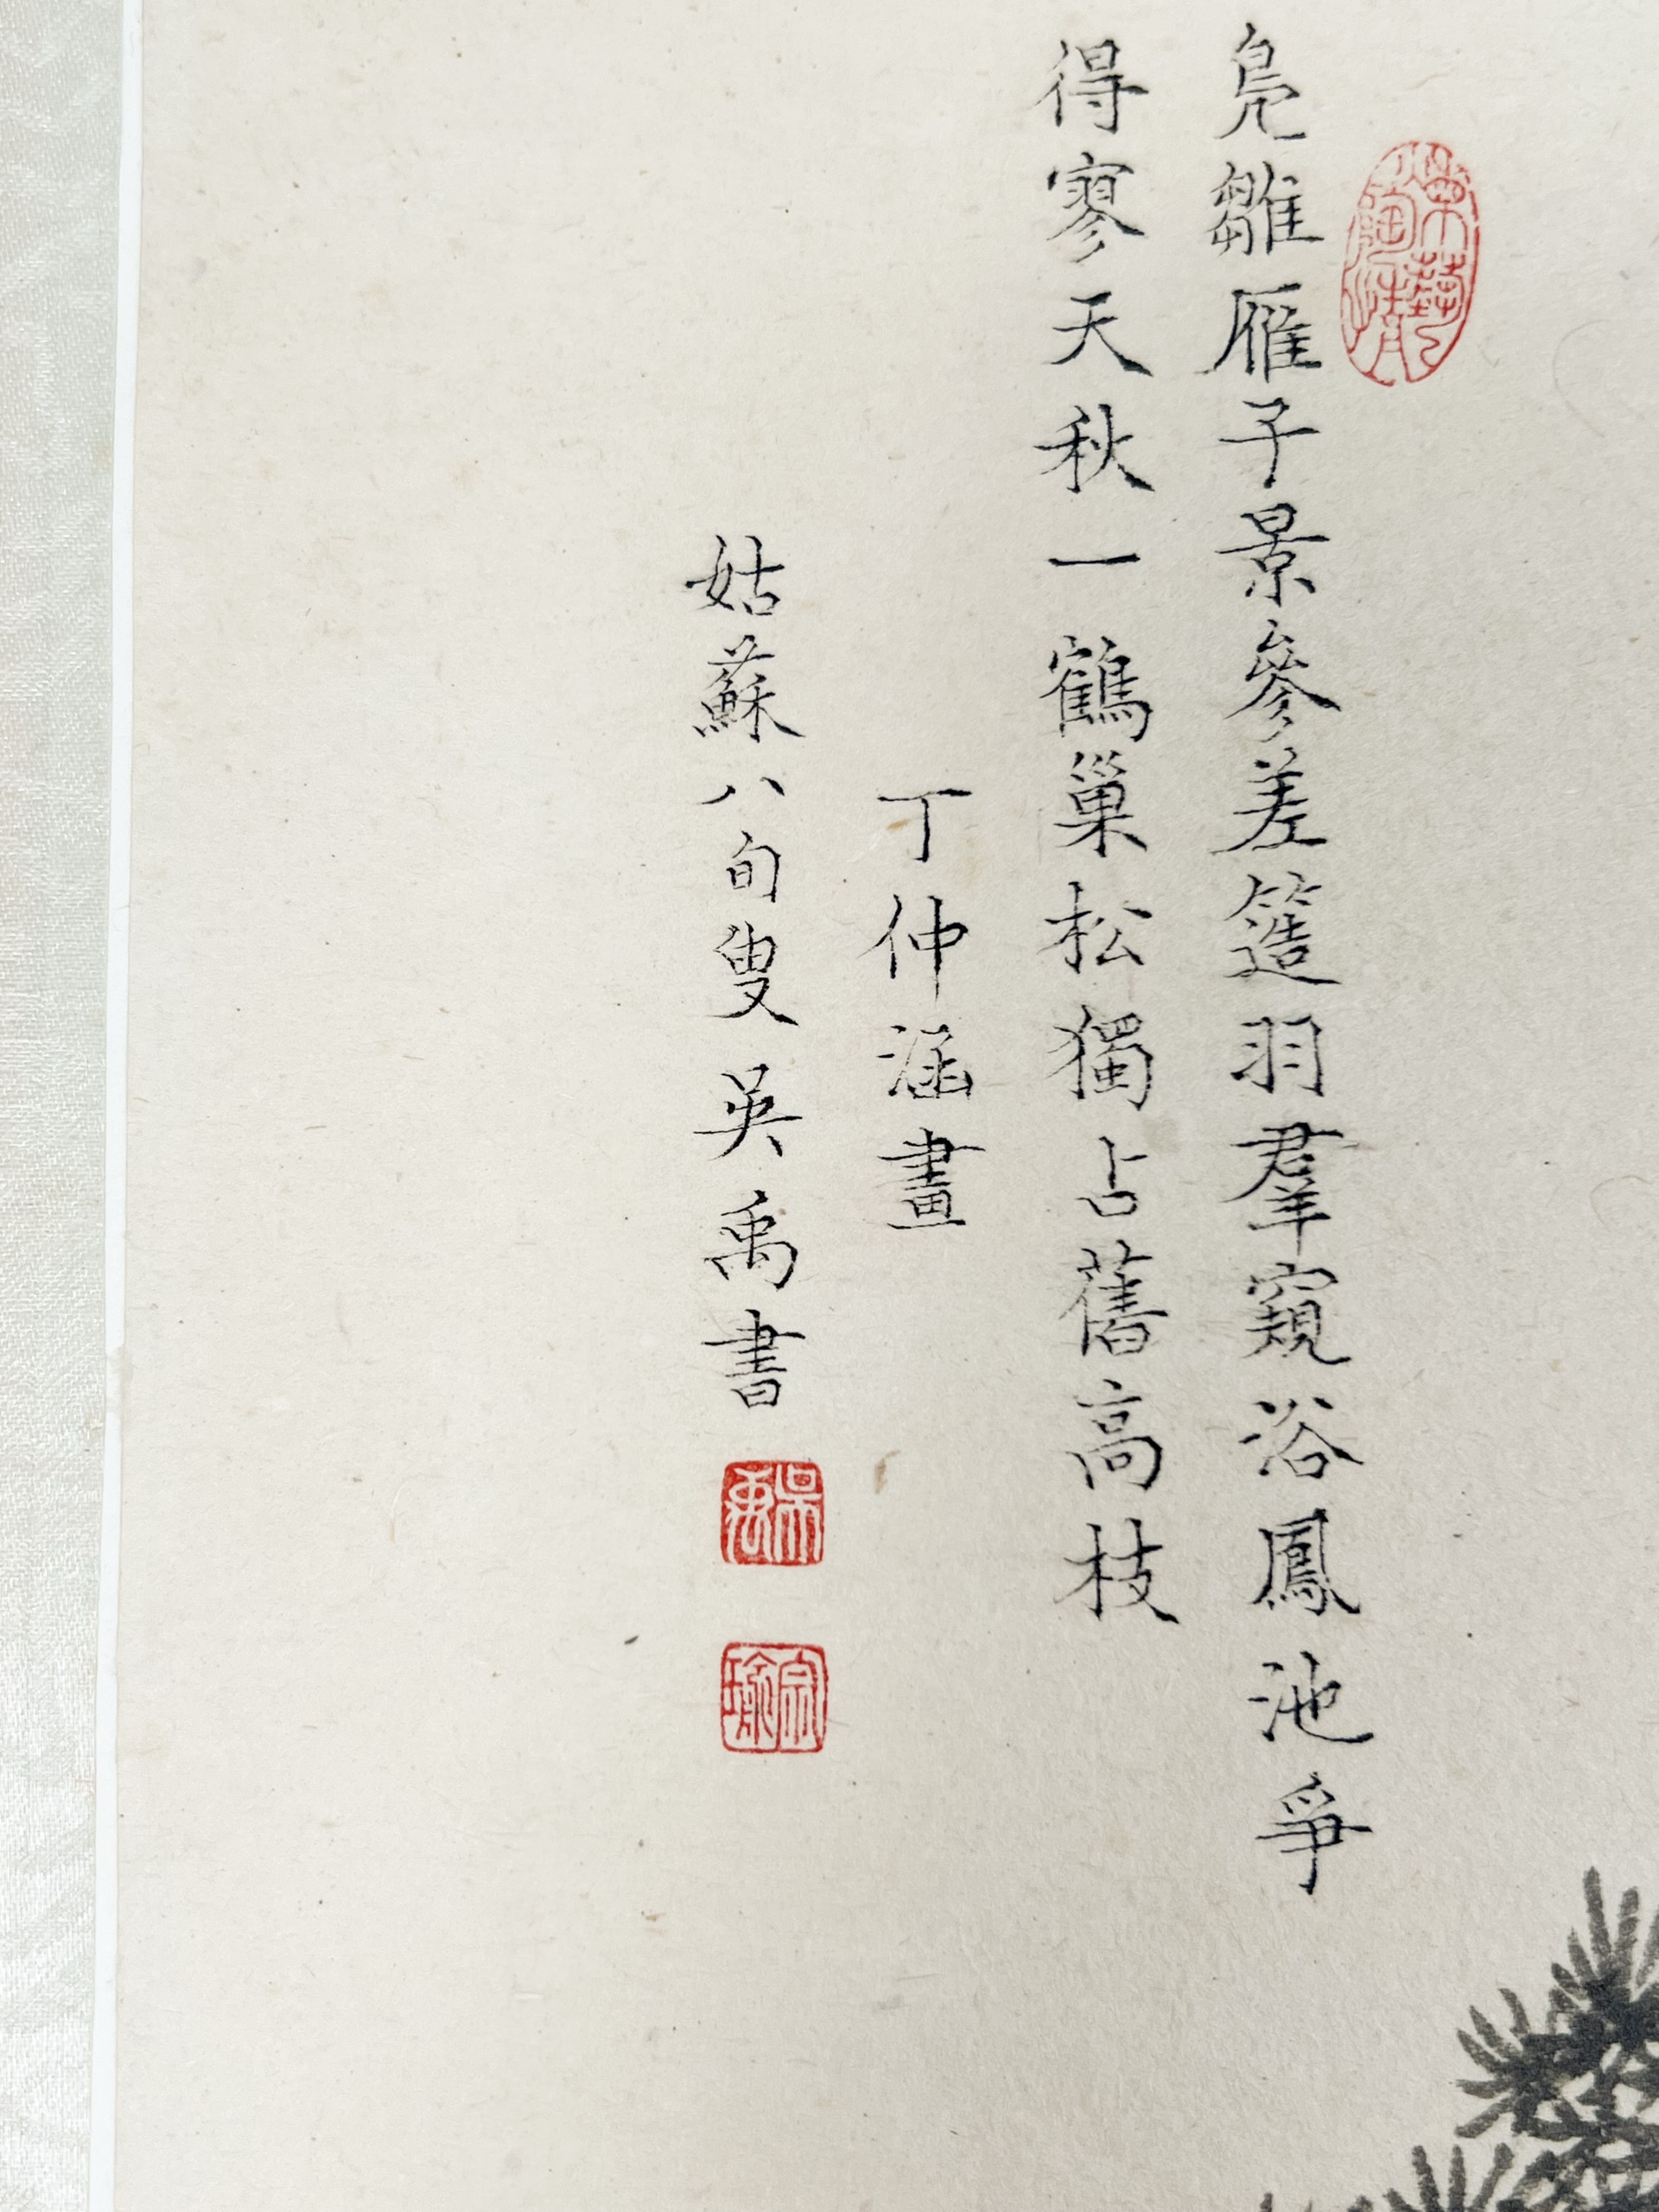 鳧雛雁子景參差簉羽羣窺浴鳳池爭
得寥天秋一鶴巢松獨占舊高枝
丁仲涵畫
姑蘇八旬叟吳禹書
吳禹
宗瑜